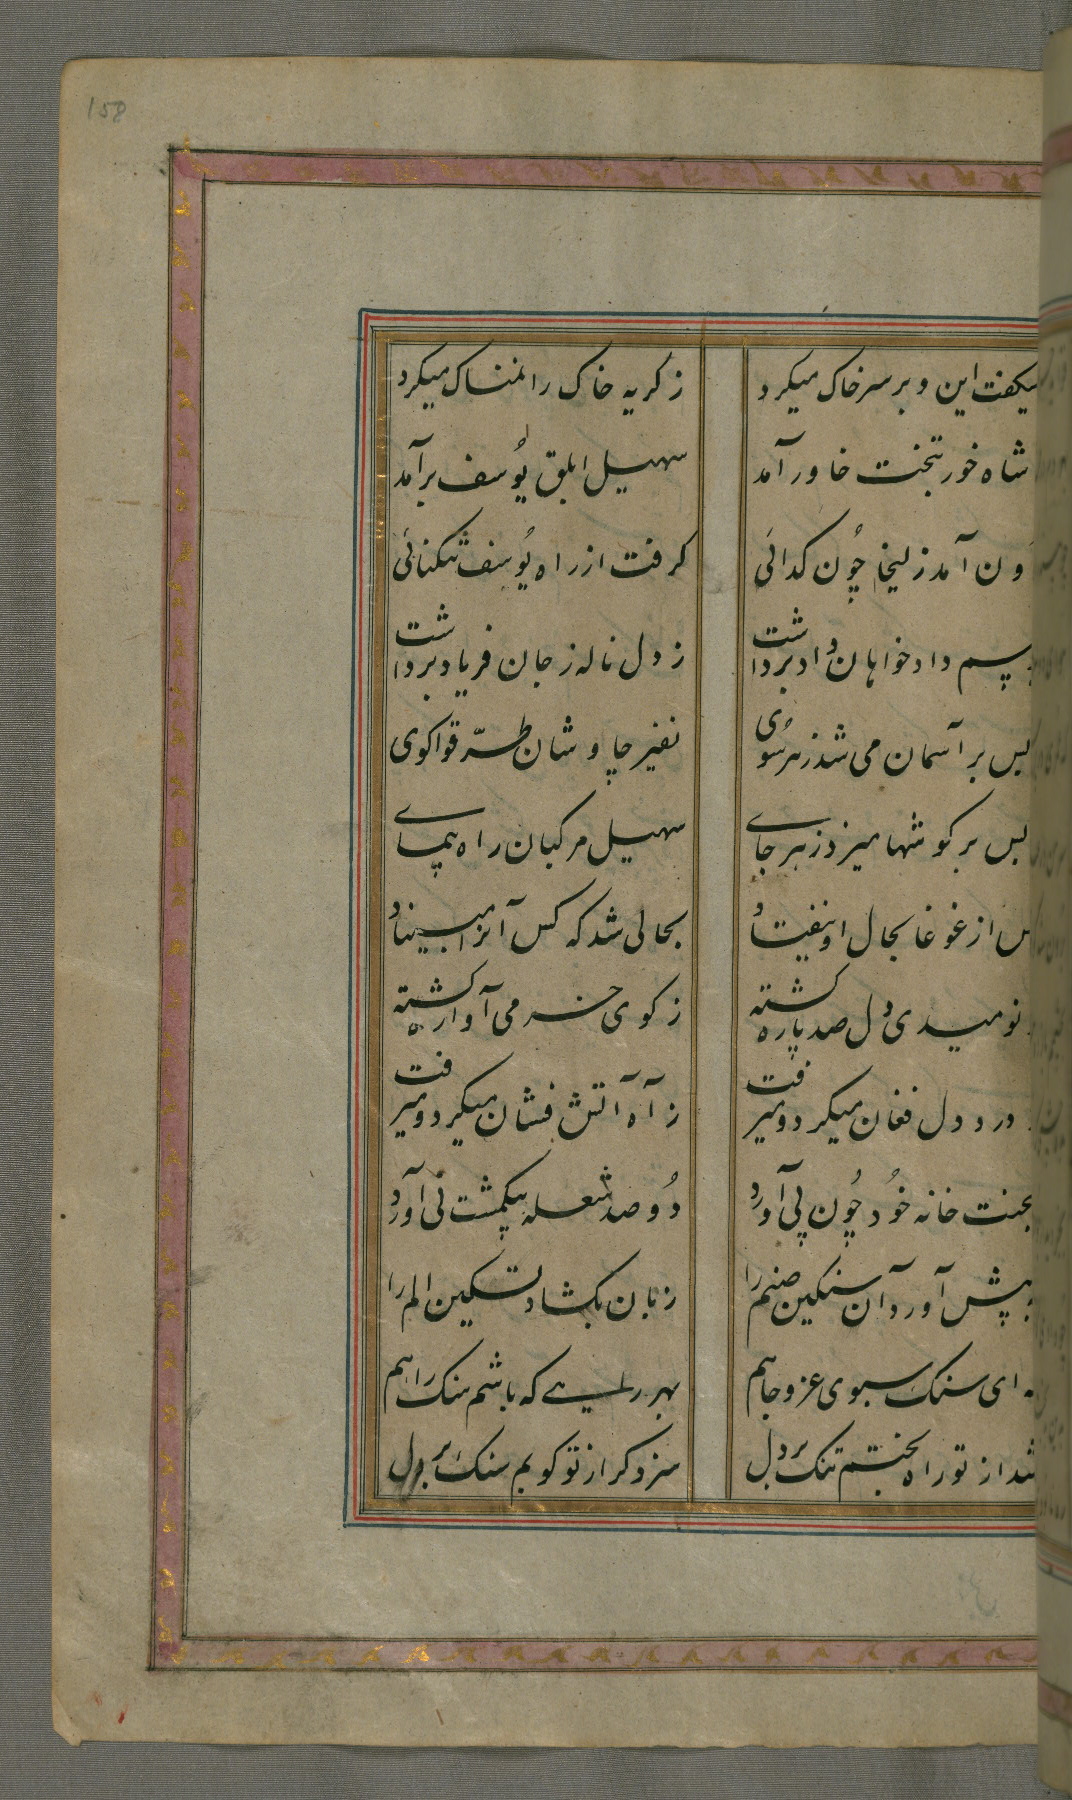 158
میکفت این و بر سر خاک میکرد ز کریه خاک را نمناک میکرد
شاه خور بتخت خاور آمد سهیل ابلق یُوسف برآمد
آمد زلیخا چُون کدائی کرفت از راه یُوسف تنکنائی
داد خواهان داد برداشت ز دل ناله ز جان فریاد برداشت
بس بر آسمان می شد ز هر سُوی نفیر چاوشان طرّقوا کوی
بس بر کوشها میزد ز هر جای سهیل مرکبان راه پیمای
از غوغا بحال او نیفتاد بحالی شد که کس آنرا مبیناد
نومیدی دل صد پاره کشته ز کوی خرمی آواره کشته
درد دل فغان میکرد و میرفت ز آه آتش فشان میکرد و میرفت
بمحنت خانه خُود چُون پی آورد دُو صد شعله بیکمشت نی آورد
به پیش آورد آن سنکین صنم را زبان بکشاد تسکین الم را
ای سنک سبوی عز و جاهم بهر راهی که باشم سنک راهم
شد از تو راه بختم تنک بر دل سزد کر از تو کوبم سنک بر دل